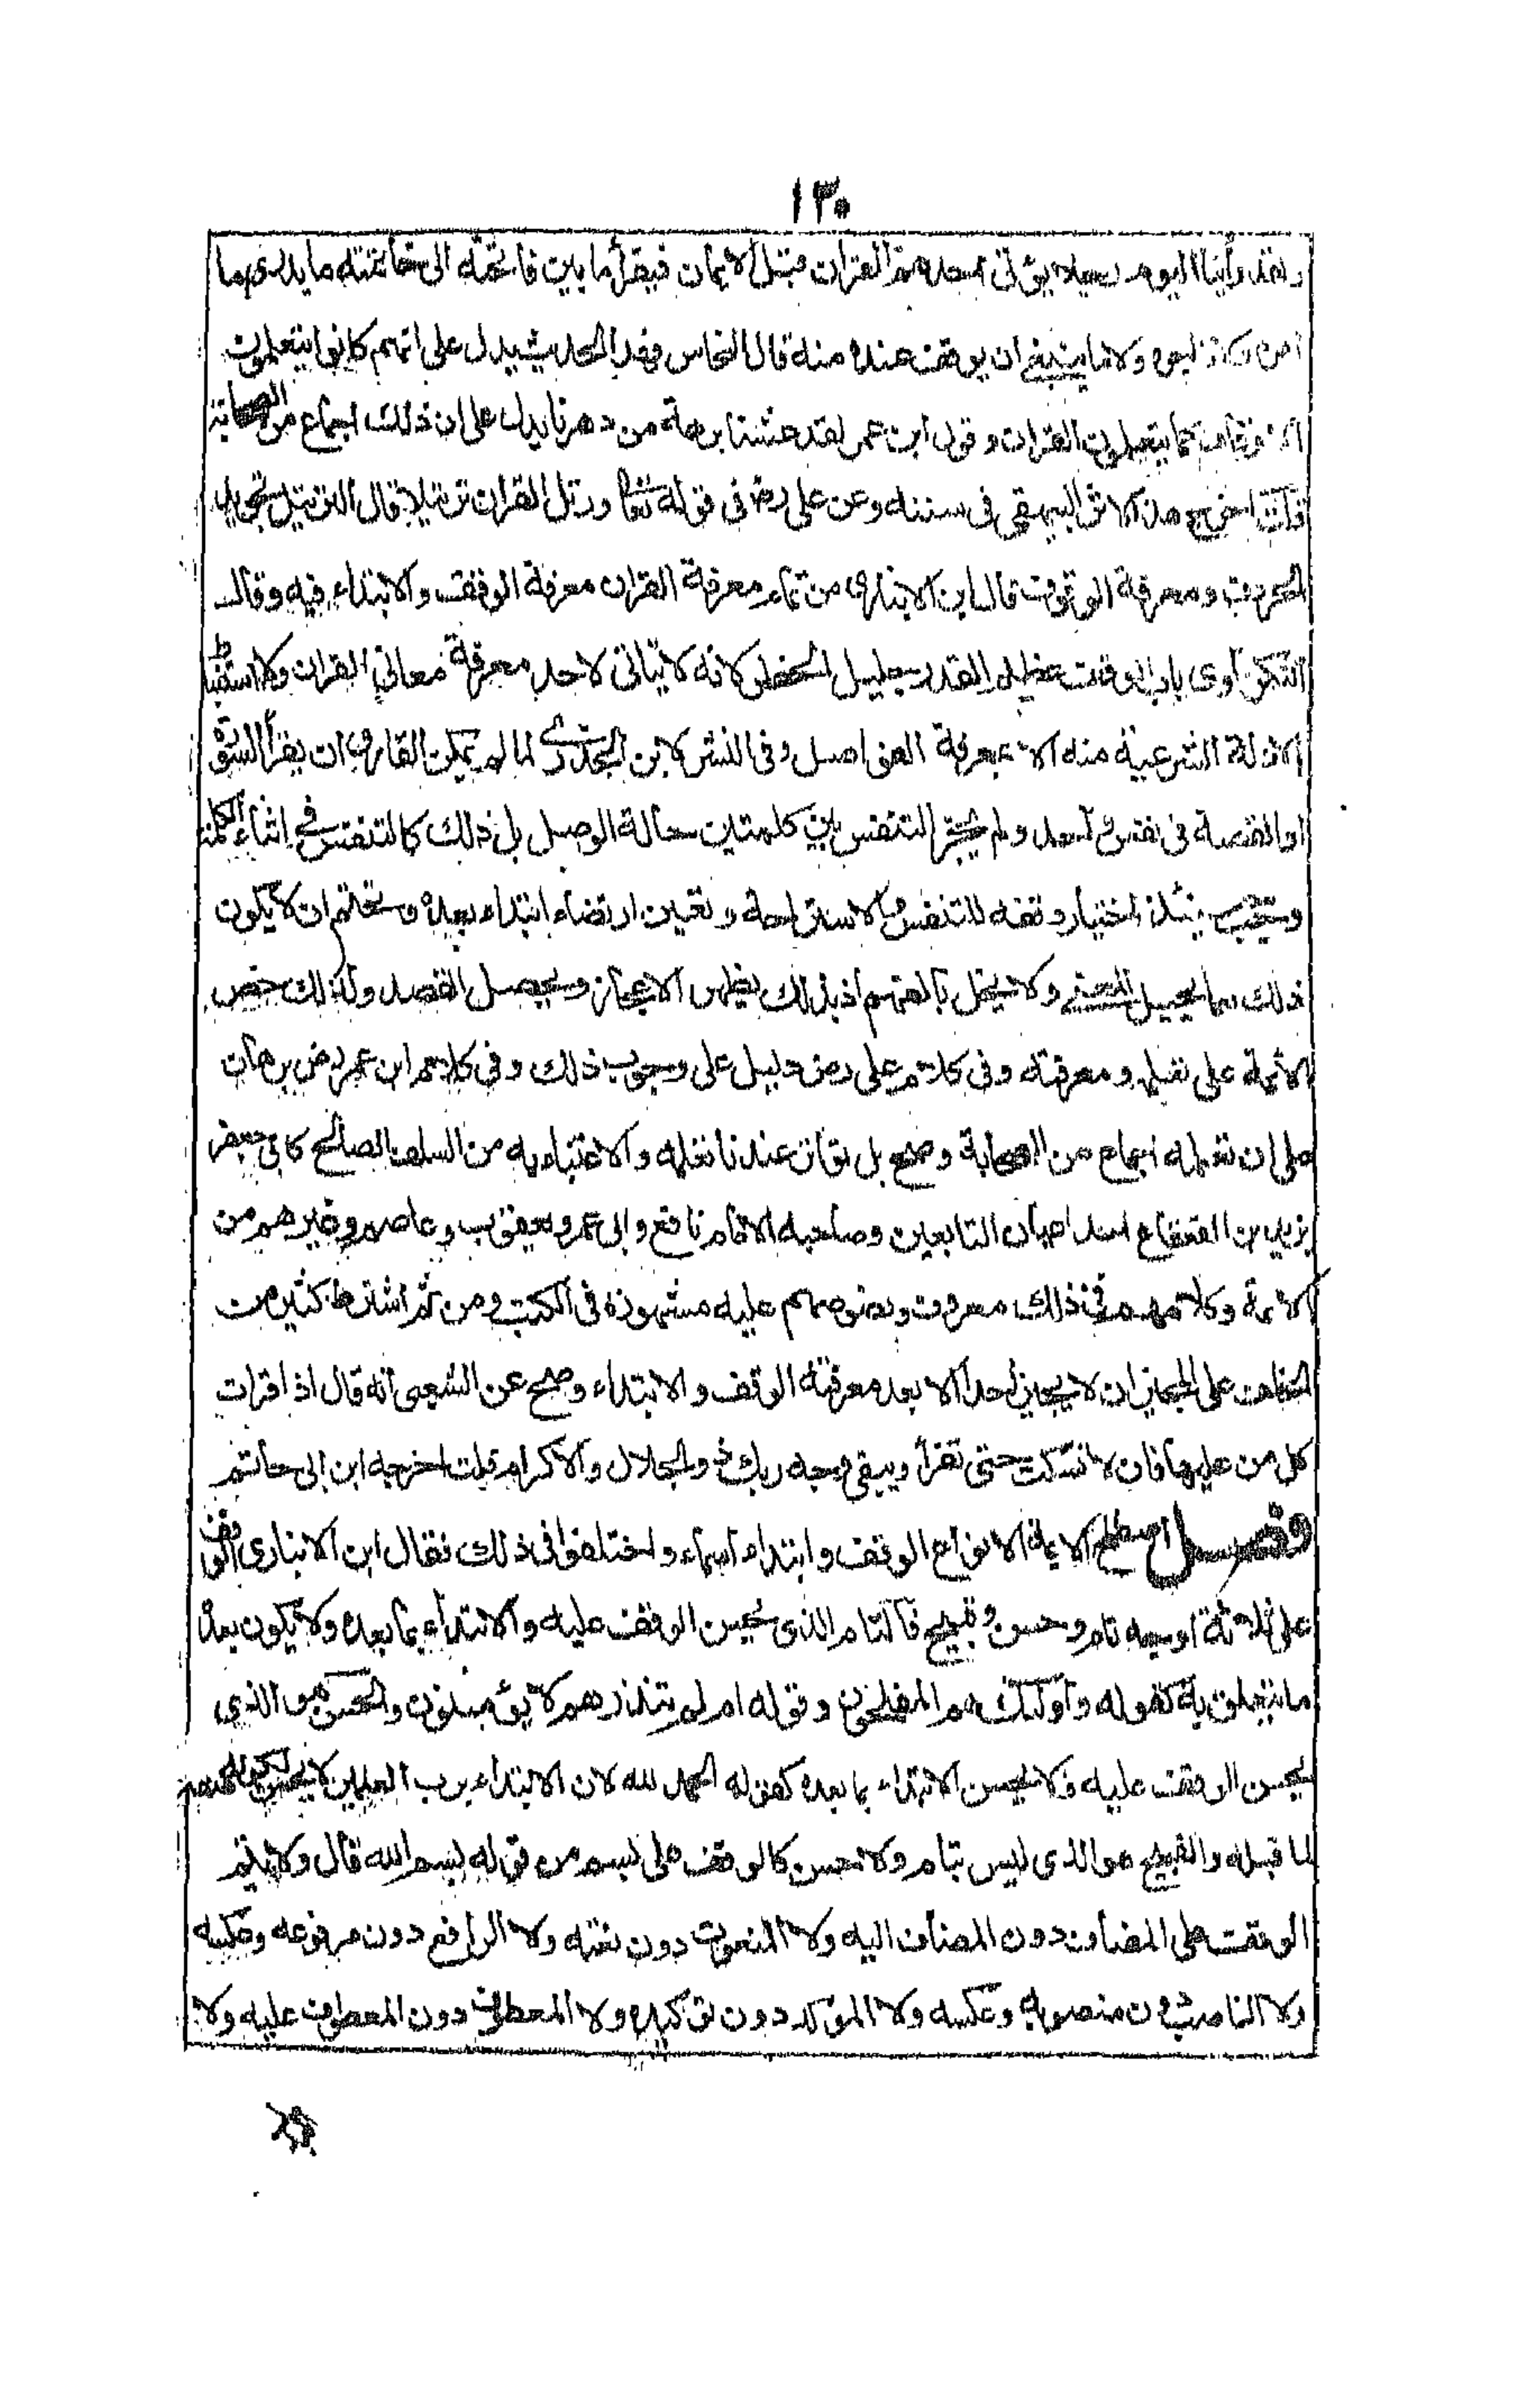 ١٣٠
ولقد رأينا اليوم رجالا يؤتى احدهم القران قبل الايمان فيقرأ ما بين فاتحته الى خاتمته ما يدرى ما
امره ولا زاجره ولا ما ينبغى ان يوقف عنده منه قال النحاس فهذا الحديث يدل على انهم كانوا يتعلمون
الاوقاف كما يتعلمون القران وقول ابن عمر لقد عشنا برهة من دهرنا يدل على ان ذلك اجماع من الصحابة
قلت اخرج هذا الاثر البيهقى فى سننه وعن على رض فى قوله تعا ورتل القران ترتيلا قال الترتيل تجويد
الحروف ومعرفة الوقوف قال ابن الانبارى من تمام معرفة القران معرفة الوقف والابتداء فيه وقال
النكزاوى باب الوقف عظيم القدر جليل الخطر لانه لا يتاتى لاحد معرفة معانى القران ولا استنباط
الادلة الشرعية منه الا بمعرفة الفواصل وفى النشر لابن الجزرى لما لم يمكن القارى ان يقرأ السورة
او القصة فى نفس واحد ولم يجز التنفس بين كلمتين حالة الوصل بل ذلك كالتنفس فى اثناء الكلمة
وجب حينئذ اختيار وقفه للتنفس والاستراحة وتعين ارتضاء ابتداء بعده وتحتم ان لا يكون
ذلك مما يحيل المعنى ولا يخل بالفهم اذ بذلك يظهر الاعجاز ويحصل القصد ولذلك حض
الائمة على تعلمه ومعرفته وفى كلام على رض دليل على وجوب ذلك وفى كلام ابن عمر رض برهان
على ان تعلمه اجماع من الصحابة وصح بل تواتر عندنا تعلمه والاعتناء به من السلف الصالح كابى جعفر
يزيد بن القعقاع احد اعيان التابعين وصاحبه الامام نافع وابى عمرو ويعقوب وعاصم وغيرهم من
الائمة وكلامهم فى ذلك معروف ونصوصهم عليه مشهورة فى الكتب ومن ثم اشترط كثير من
الخلف على المجيز ان لا يجيز احدا الا بعد معرفته الوقف والابتداء وصح عن الشعبى انه قال اذا قرات
كل من عليها فان لا تسكت حتى تقرأ ويبقى وجه ربك ذو الجلال والاكرام قلت اخرجه ابن ابى حاتم
فصل اصطلح الائمة الانواع الوقف وابتداء اسماء واختلفوا فى ذلك فقال ابن الانبارى الوقف
على ثلاثة اوجه تام وحسن وقبيح فالتام الذى يحسن الوقف عليه والابتداء بما بعده ولا يكون بعده
ما يتعلق به كقوله واولئك هم المفلحون وقوله ام لم تنذرهم لا يؤمنون والحسن هو الذى
يحسن الوقف عليه ولا يحسن الابتداء بما بعده كقوله الحمد لله لان الابتداء برب العلمين لا يحسن لكونه صفة
لما قبله والقبيح هو الذى ليس بتام ولا حسن كالوقف على بسم من قوله بسم الله قال ولا يتم
الوقف على المضاف دون المضاف اليه ولا المنعوت دون نعته ولا الرافع دون مرفوعه وعكسه
ولا الناصب دون منصوبه وعكسه ولا المؤكد دون توكيده ولا المعطوف دون المعطوف عليه ولا